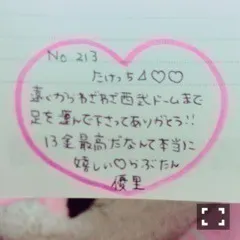 No. 213
たけっち⊿♡♡
遠くからわざわざ西武ドームまで
足を運んで下さってありがとう!!
13金最高だなんて本当に
嬉しい♡らぶたん
優里